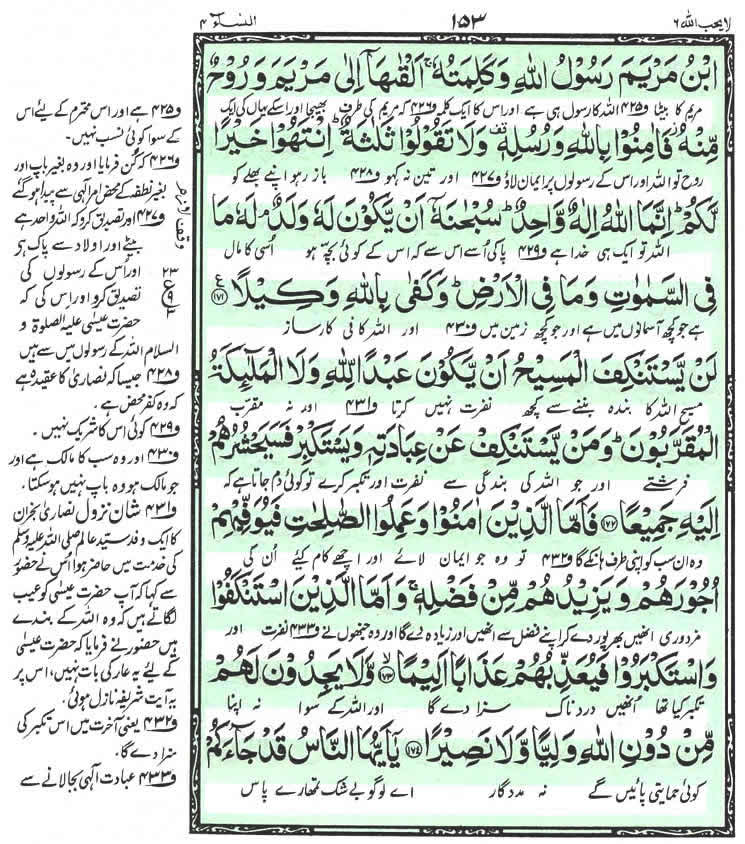 لا یحب اللہ ۶
۱۵۳
النساء ۴
ابْنُ مَرْيَمَ رَسُوْلُ اللّٰهِ وَكَلِمَتُهٗ ۚ اَلْقٰىهَاۤ اِلٰى مَرْيَمَ وَرُوْحٌ
مریم کا بیٹا ف۴۲۵ اللہ کا رسول ہی ہے اور اس کا ایک کلمہ ف۴۲۶ کہ مریم کی طرف بھیجا اور اسکے یہاں کی ایک
مِّنْهُ ؗ فَاٰمِنُوْا بِاللّٰهِ وَرُسُلِهٖ ۚ وَلَا تَقُوْلُوْا ثَلٰثَةٌ ؕ اِنْتَهُوْا خَيْرًا
روح تو اللہ اور اس کے رسولوں پر ایمان لاؤ ف۴۲۷ اور تین نہ کہو ف۴۲۸ باز رہو اپنے بھلے کو
لَّكُمْ ؕ اِنَّمَا اللّٰهُ اِلٰهٌ وَّاحِدٌ ؕ سُبْحٰنَهٗۤ اَنْ يَّكُوْنَ لَهٗ وَلَدٌ ۘ لَهٗ مَا
اللہ تو ایک ہی خدا ہے ف۴۲۹ پاکی اُسے اس سے کہ اس کے کوئی بچہ ہو اُسی کا مال
فِى السَّمٰوٰتِ وَمَا فِى الْاَرْضِ ؕ وَكَفٰى بِاللّٰهِ وَكِيْلًا ﴿۱۷۱﴾
ہے جو کچھ آسمانوں میں ہے اور جو کچھ زمین میں ف۴۳۰ اور اللہ کافی کارساز
لَنْ يَّسْتَنْكِفَ الْمَسِيْحُ اَنْ يَّكُوْنَ عَبْدًا لِّلّٰهِ وَلَا الْمَلٰٓئِكَةُ
مسیح اللہ کا بندہ بننے سے کچھ نفرت نہیں کرتا ف۴۳۱ اور نہ مقرب
الْمُقَرَّبُوْنَ ؕ وَمَنْ يَّسْتَنْكِفْ عَنْ عِبَادَتِهٖ وَيَسْتَكْبِرْ فَسَيَحْشُرُهُمْ
فرشتے اور جو اللہ کی بندگی سے نفرت اور تکبر کرے تو کوئی دم جاتا ہے کہ
اِلَيْهِ جَمِيْعًا ﴿۱۷۲﴾ فَاَمَّا الَّذِيْنَ اٰمَنُوْا وَعَمِلُوا الصّٰلِحٰتِ فَيُوَفِّيْهِمْ
وہ ان سب کو اپنی طرف ہانکے گا ف۴۳۲ تو وہ جو ایمان لائے اور اچھے کام کیئے اُن کی
اُجُوْرَهُمْ وَيَزِيْدُهُمْ مِّنْ فَضْلِهٖ ۚ وَاَمَّا الَّذِيْنَ اسْتَنْكَفُوْا
مزدوری انھیں بھرپور دے کر اپنے فضل سے انھیں اور زیادہ دے گا اور وہ جنھوں نے ف۴۳۳ نفرت اور
وَاسْتَكْبَرُوْا فَيُعَذِّبُهُمْ عَذَابًا اَلِيْمًا ۙ﴿۱۷۳﴾ وَّلَا يَجِدُوْنَ لَهُمْ
تکبر کیا تھا اُنھیں دردناک سزا دے گا اور اللہ کے سوا نہ اپنا
مِّنْ دُوْنِ اللّٰهِ وَلِيًّا وَّلَا نَصِيْرًا ﴿۱۷۴﴾ يٰۤاَيُّهَا النَّاسُ قَدْ جَآءَكُمْ
کوئی حمایتی پائیں گے نہ مددگار اے لوگو بے شک تمھارے پاس
وقف لازم
۲۳
ع
۹
ف۴۲۵ ہے اور اس محترم کے لیے اس
کے سوا کوئی نسب نہیں۔
ف۴۲۶ کہ کُن فرمایا اور وہ بغیر باپ اور
بغیر نطفہ کے محض امرِ الٰہی سے پیدا ہو گئے
ف۴۲۷ اور تصدیق کرو کہ اللہ واحد ہے
بیٹے اور اولاد سے پاک ہے
اور اس کے رسولوں کی
تصدیق کرو اور اس کی کہ
حضرت عیسٰی علیہ الصلوۃ و
السلام اللہ کے رسولوں میں سے ہیں
ف۴۲۸ جیسا کہ نصاریٰ کا عقیدہ ہے
کہ وہ کفر محض ہے۔
ف۴۲۹ کوئی اس کا شریک نہیں۔
ف۴۳۰ اور وہ سب کا مالک ہے اور
جو مالک ہو وہ باپ نہیں ہو سکتا۔
ف۴۳۱ شان نزول نصاریٰ نجران
کا ایک وفد سیّد عالم صلی اللہ علیہ وسلم
کی خدمت میں حاضر ہوا اُس نے حضور
سے کہا کہ آپ حضرت عیسٰی کو عیب
لگاتے ہیں کہ وہ اللہ کے بندے
ہیں حضور نے فرمایا کہ حضرت عیسٰی
کے لئے یہ عار کی بات نہیں، اس پر
یہ آیت شریفہ نازل ہوئی۔
ف۴۳۲ یعنی آخرت میں اس تکبر کی
سزا دے گا۔
ف۴۳۳ عبادت الٰہی بجا لانے سے